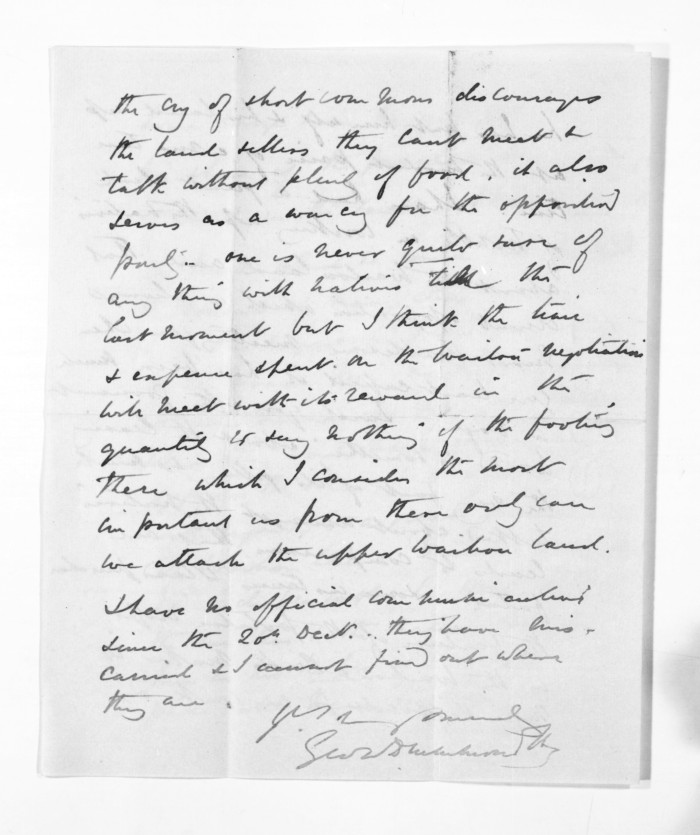 the cry of short commons discourages
the land sellers they cant meet &
talk without plenty of food. it also
serves as a warcry for the opposition
party.. one is never quite sure of
any thing with natives till the
last moment but I think the time
& expense spent on the Wairoa negotiations
will meet with its reward in the
quantity to say nothing of the footing
there which I consider the most
important as from there only can
we attack the upper Wairoa land.
I have no official communications
since the 20th Decr.. they have mis-
carried & I cannot find out where
they are.
Yrs